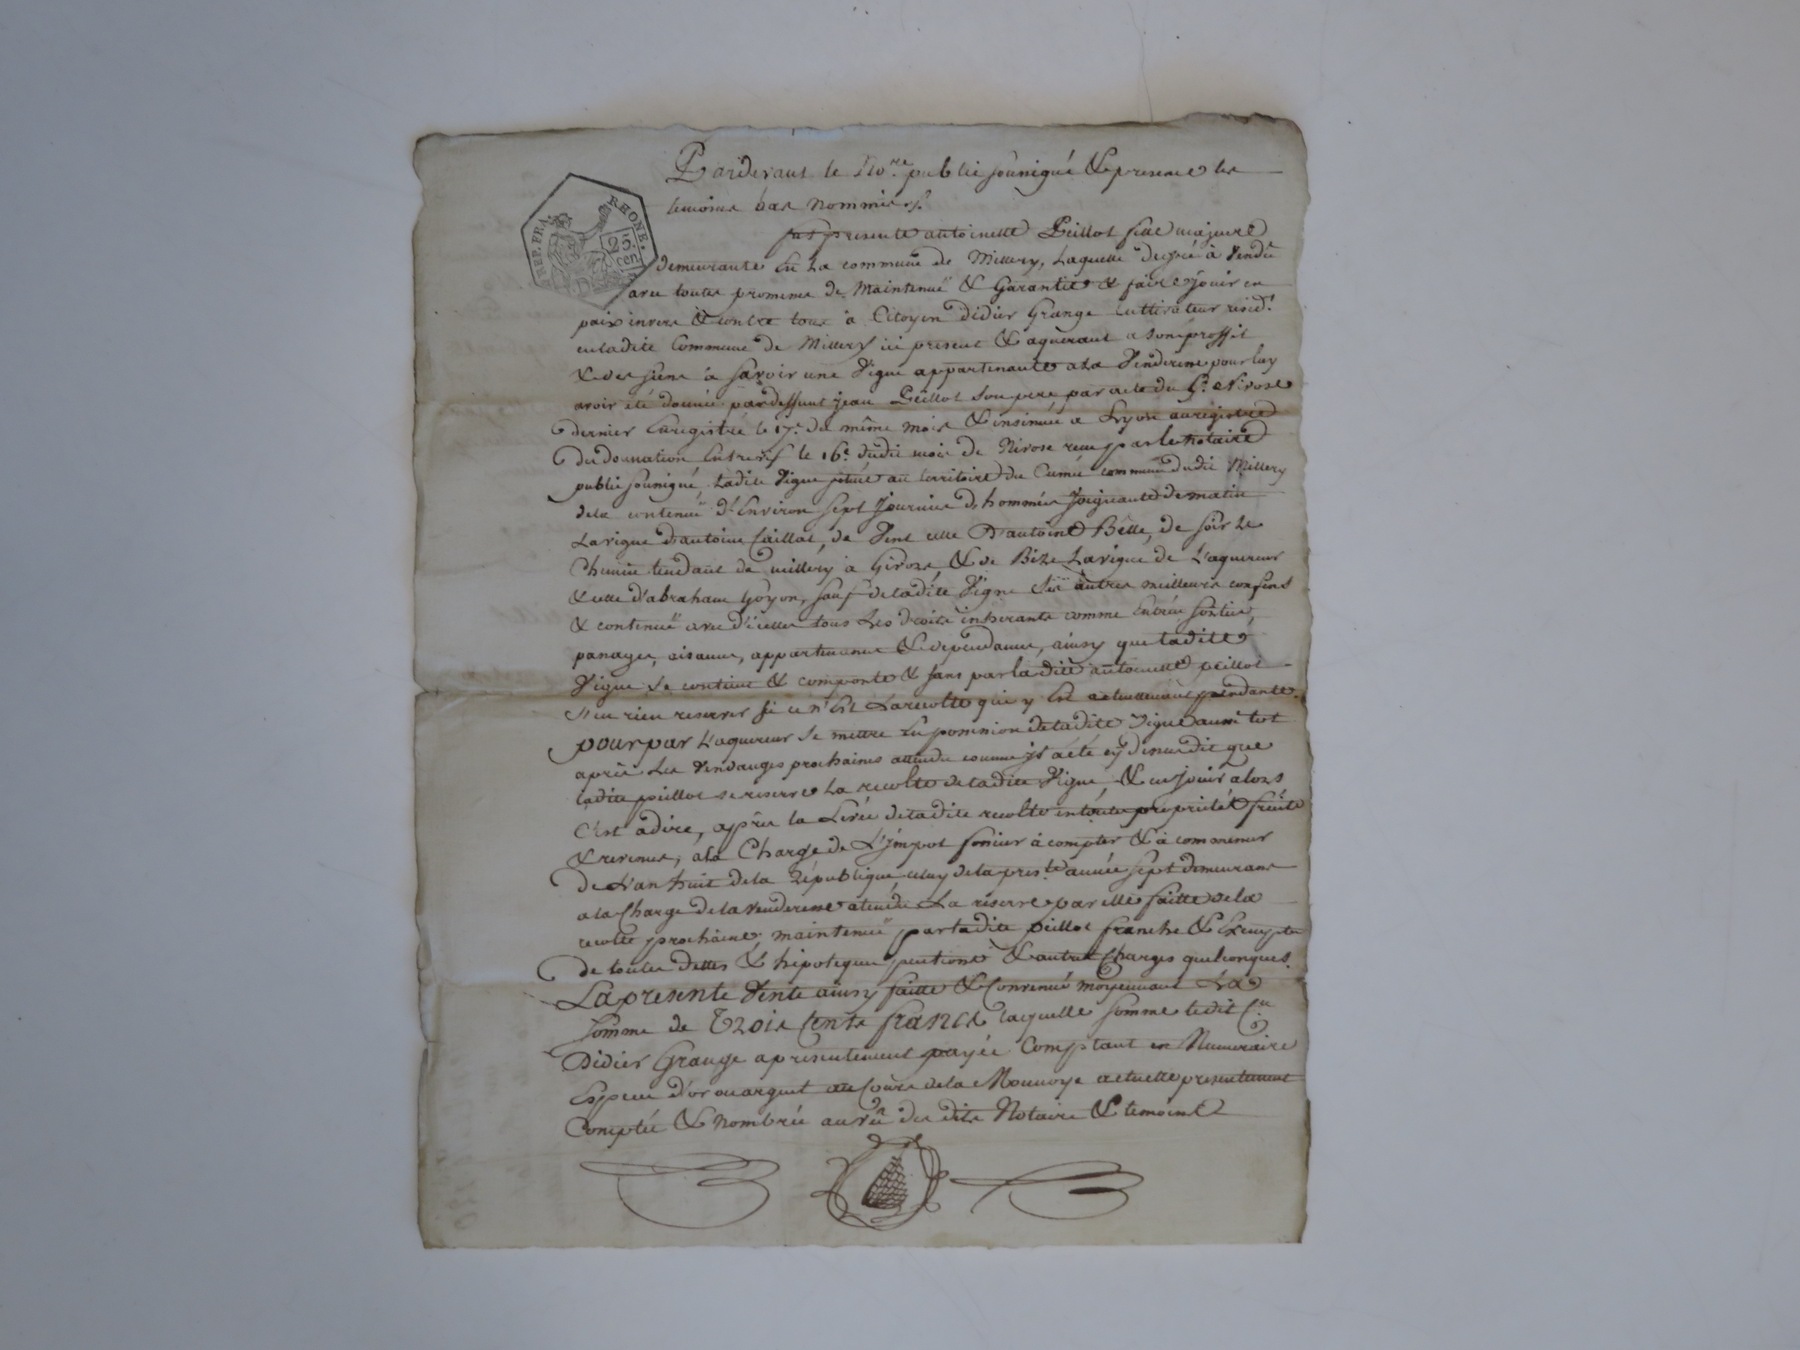 REP. FRA. RHONE.
25 cen
Pardevant le No.re public soussigné & presence les
temoins bas nommées.
fut presente antoinette Peillot fille majeure
demeurante En La commune de Millery, Laquelle de gré à Vendu
avec toutes promesses de Maintenuë & Garantie & faire jouir en
paix envers & contre tous à Citoyen Didier Grange Cultivateur resid.t
en ladite Commune de Millery ici present & aquerant a son proffit
& des siens à savoir une Vigne appartenante a la Venderesse pour luy
avoir été donnée par deffunt jean Peillot Son pere par acte du Nivose
dernier Enregistré le 17.e du même mois & insinuée a Lyon au registre
du donnation Entrevifs le 16.e dudit mois de Nivose reçu par le Notaire
public soussigné. Ladite Vigne située au territoire du Cumé commune dudit Millery
de la contenuë d'Environ Sept Journées d'hommée Joignante de matin
La vigne d'antoine Caillat, de Vent celle D'antoine Bêlle, de soir Le
Chemin tendant de millery à Givors, & de Bize La vigne de L'aquereur
& celle d'abraham Goyon, sauf de ladite Vigne Ses autres meilleurs confins
& contenuë avec d'icelle tous Les droits inherants comme Entrée sortie,
panages, aisance, appartenance & dependance, ainsy que ladite
Vigne Se contient & comporte & sans par ladite antoinette peillot
S'en rien reserver si ce n'Est La recolte qui y Est actuellement pendante
pour par L'aquereur Se mettre En possession de ladite Vigne aussi tot
après Les Vendanges prochaines attendu comme il a été cy dessus dit que
ladite peillot se reserve La recolte de ladite Vigne, & en jouir alors
C'est adire, après la Levée de ladite recolte en toute propriété fruits
& revenus, a la Charge de L'impot foncier à compter & à commencer
de L'an huit de la République celuy de la pres.te année sept demeurans
a la Charge de la Venderesse atendu La réserve par elle faitte de la
recolte prochaine, maintenuë par ladite peillot franche & Exempte
de toutes dettes & hipoteques pentions & autres Charges quelconques.
La presente Vente ainsy faitte & Convenuë moyennant La
somme de Trois Cents francs laquelle somme ledit C.en
Didier Grange a presentement payée Comptant en Numeraire
Espece d'or ou argent au Cours de la Monnoye actuelle presentement
Comptée & Nombrée au vû des dits Notaire & temoins